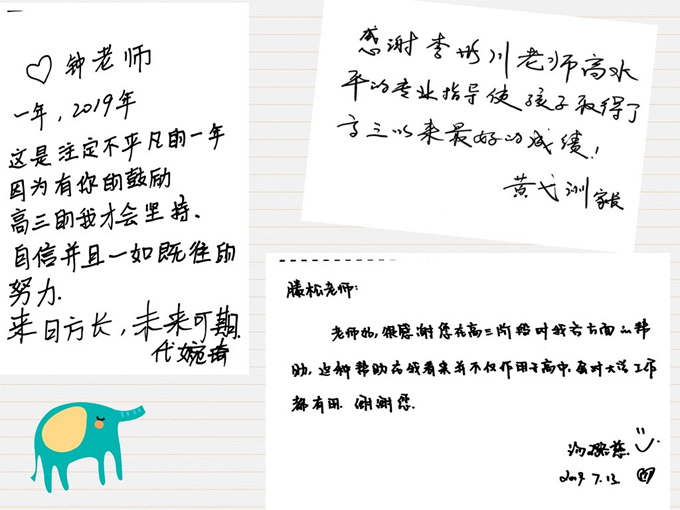 钟老师
一年，2019年
这是注定不平凡的一年
因为有你的鼓励
高三的我才会坚持、
自信并且一如既往的
努力.
来日方长，未来可期.
代婉琦
感谢李彬川老师高水
平的专业指导使孩子取得了
高三以来最好的成绩！
黄弋洲家长
滕松老师：
老师好，很感谢您在高三阶段对我各方面的帮
助，这种帮助在我看来并不仅作用于高中，会对大学工作
都有用. 谢谢您.
2019.7.13